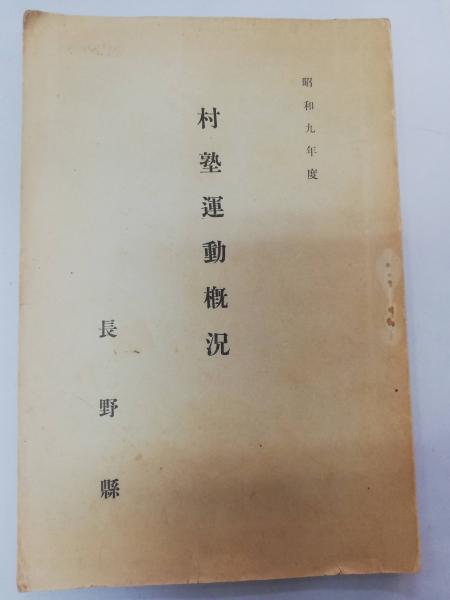 昭和九年度
村塾運動概況
長野縣